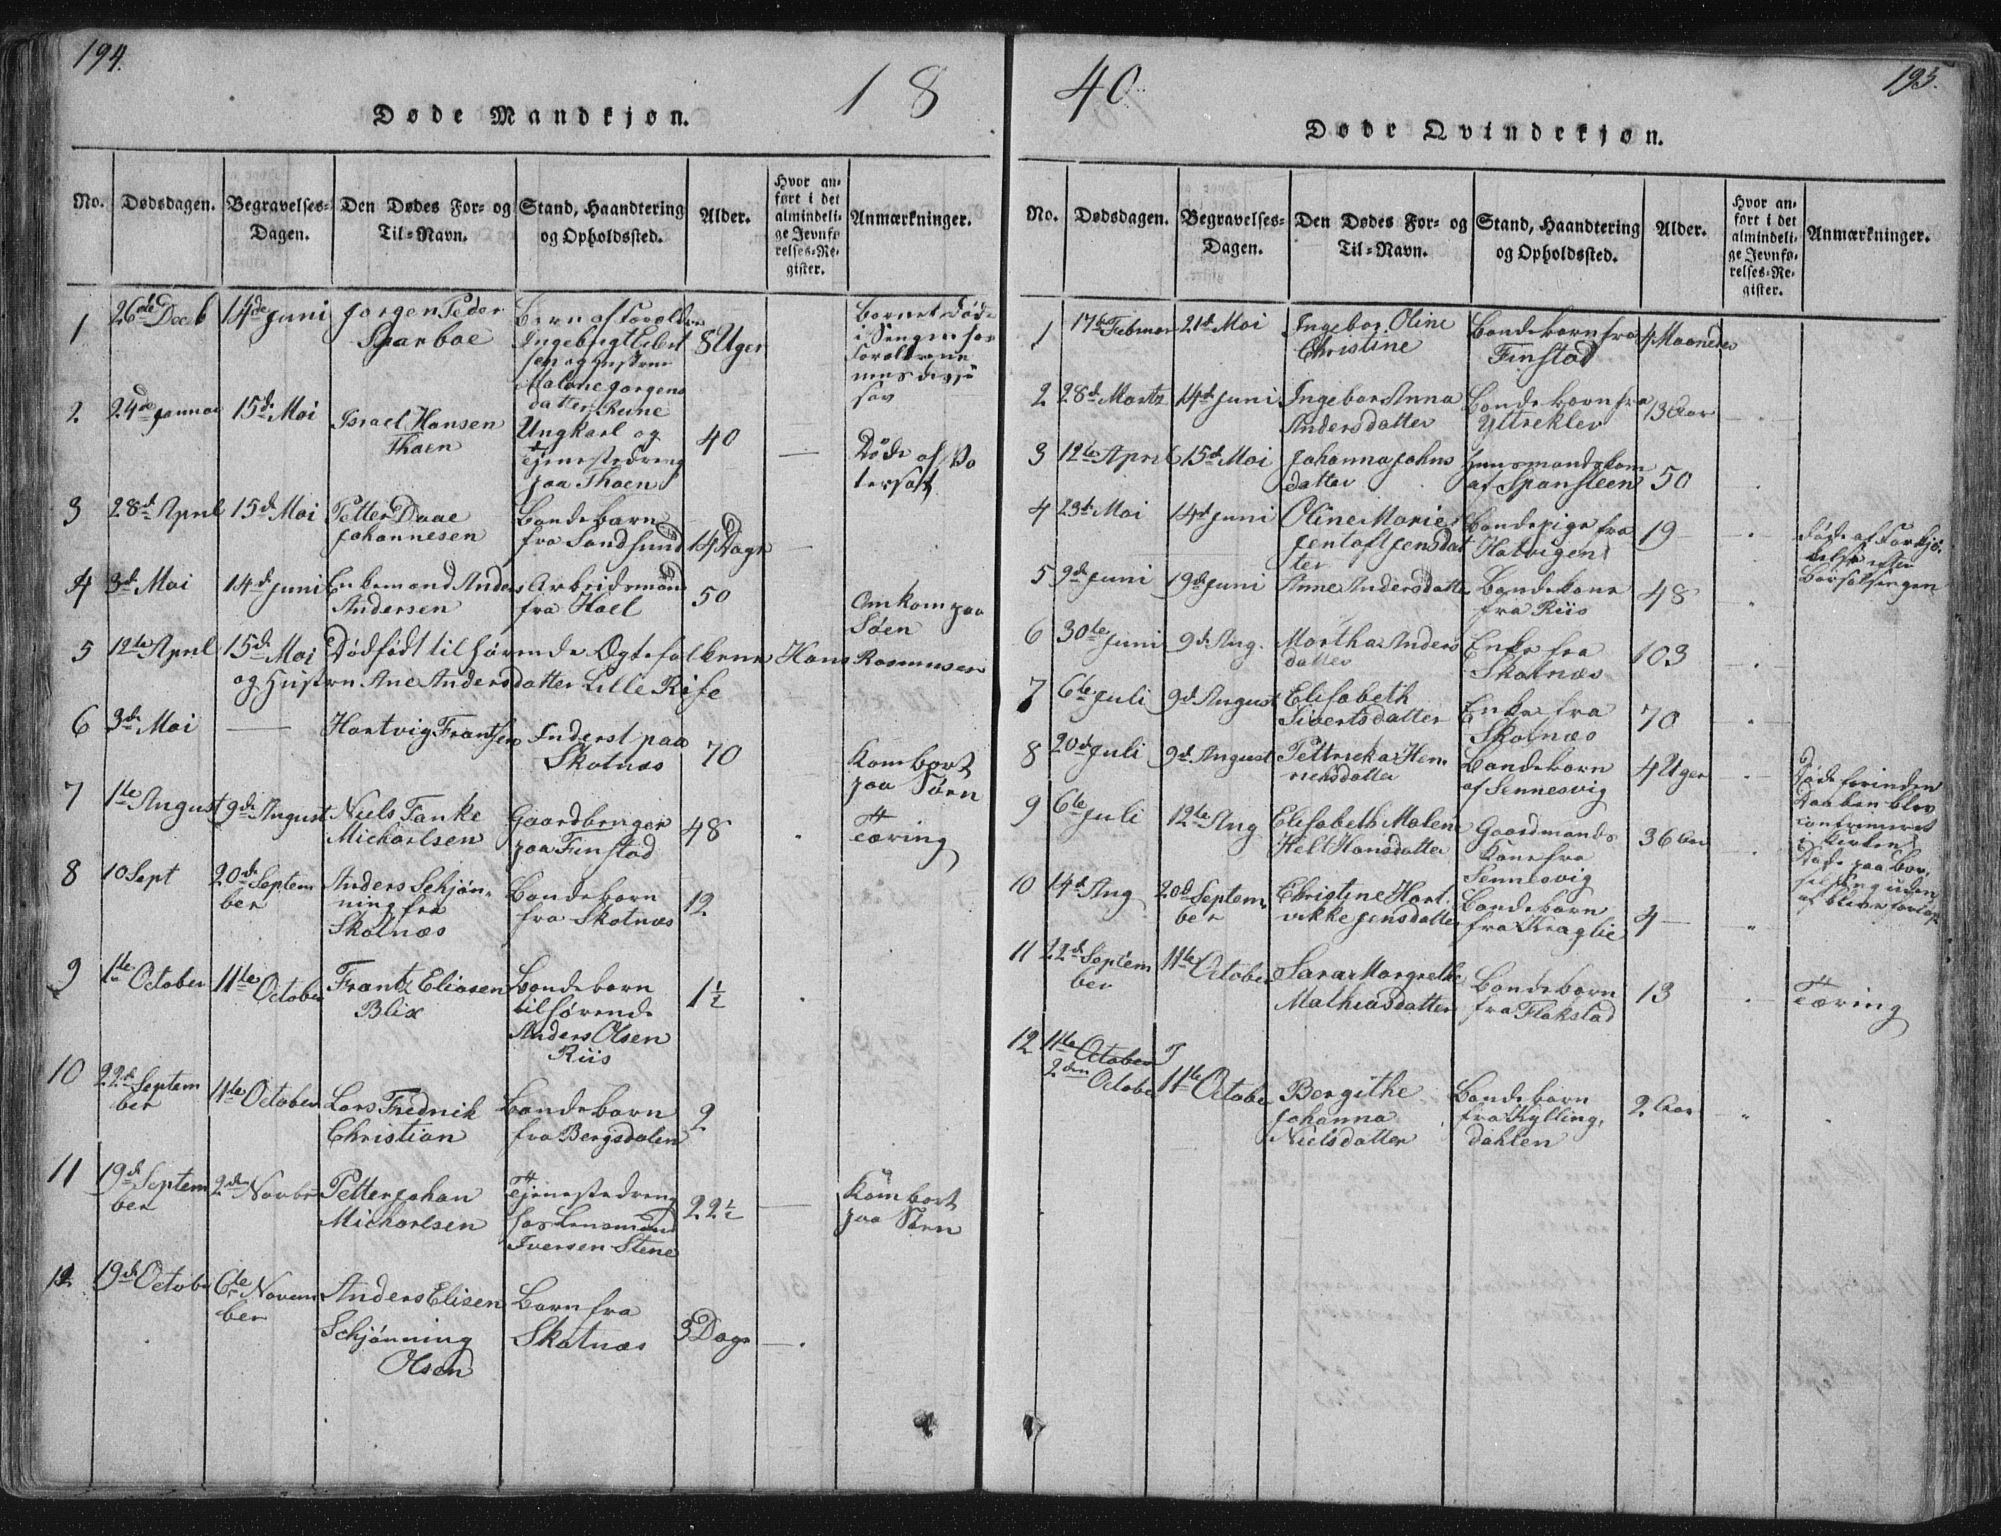 194.
18
Døde Mandkjøn.
No. Dødsdagen. Begravelses-Dagen. Den Dødes For- og Til-Navn. Stand, Haandtering og Opholdssted. Alder. Hvor anført i det almindelige Jevnførelses-Register. Anmærkninger.
1 26de Decb 14de Juni Jørgen Peder
Sparboe
Barn af Foreldre
8 Uger
Barnet døde
i Sengen
2 24de Januar 15de Mai Israel Hansen
Thoen
Ungkarl og
Tjenestedreng
paa Thoen
40
Døde af
3 28de April 15de Mai Petter Daae
Johannesen
Bondebarn
fra Sandsund
14 Dage
4 3de Mai 14de Juni Enkemand Anders
Andersen
Arbeidsmand
fra Hael
50
Omkom paa
Søen
5 12te April 15de Mai Dødfødt tilhørende Ægtefolkene Hans Rasmussen
og Hustru Ane Andersdatter Lille Riise
6 3de Mai — Hartvig Frantsen
Inderst paa
Skotnæs
70
Kom bort
paa Søen
7 1te August 9de August Niels Fanke
Michaelsen
Gaardbruger
paa Finstad
48
Tæring
8 10 Sept 20de Septem
ber
Anders Schjøn-
ning fra
Skotnæs
Bondebarn
fra Skotnæs
12
9 1te October 11te October Frantz Eliasen
Blix
Bondebarn
tilhørende
Anders Olsen
Riis
1½
10 22de Septem
ber
11te October Lars Fredrik
Christian
Bondebarn
fra Bergsdalen
2
11 19de Septem
ber
2de Novbr Petter Johan
Michaelsen
Tjenestedreng
hos Lensmand
Iversen Stene
22½
Kom bort
paa Søen
12 19de Octobe 6te Novem
ber
Anders Elisen
Schjønning
Olsen
Barn fra
Skotnæs
3 Dage
195.
40.
Døde Qvindekjøn.
No. Dødsdagen. Begravelses-Dagen. Den Dødes For- og Til-Navn. Stand, Haandtering og Opholdssted. Alder. Hvor anført i det almindelige Jevnførelses-Register. Anmærkninger.
1 17de Februar 21de Mai Ingebor Oline
Christine
Bondebarn fra
Finstad
4 Maaneder
2 28de Marts 14de Juni Ingebor Anna
Andersdatter
Bondebarn fra
Yttreklev
13 Aar
3 12te April 15de Mai Johanna Johns
datter
Huusmandskone
af Spansteen
50
4 23de Mai 14de Juni Oline Marie
Jentoft Jensdat
ter
Bondepige fra
Holvigen
19
Døde af Forkjø-
lelse efter
Barselsengen
5 9de Juni 19de Juni Anne Andersdatter
Bondekone
fra Riis
48
6 30te Juni 9de Aug. Martha Anders
datter
Enke fra
Skotnæs
103
7 6te Juli 9de August Elisabeth
Sivertsdatter
Enke fra
Skotnæs
70
8 20de Juli 9de August Petterika Hen
riksdatter
Bondebarn
af Sennesvig
4 Uger
Døde forinden
Daaben blev
confirmeret
i Kirken
9 6te Juli 12te Aug Elisabeth Malene
Helt Hansdatter
Gaardmands
Kone fra
Sennesvig
36 Aar
Døde paa Bar-
10 14de Aug 20de Septem
ber
Christine Hart
vikke Jensdatter
Bondebarn
fra Kraglie
4
11 22de Septem
ber
11te October Sara Margrethe
Mathiasdatter
Bondebarn
fra Flakstad
13
Tæring
12 11te October
2den Octobe 11te Octobe Bergithe
Johanna
Nielsdatter
Bondebarn
fra Kylling,
dahlen
2 Aar